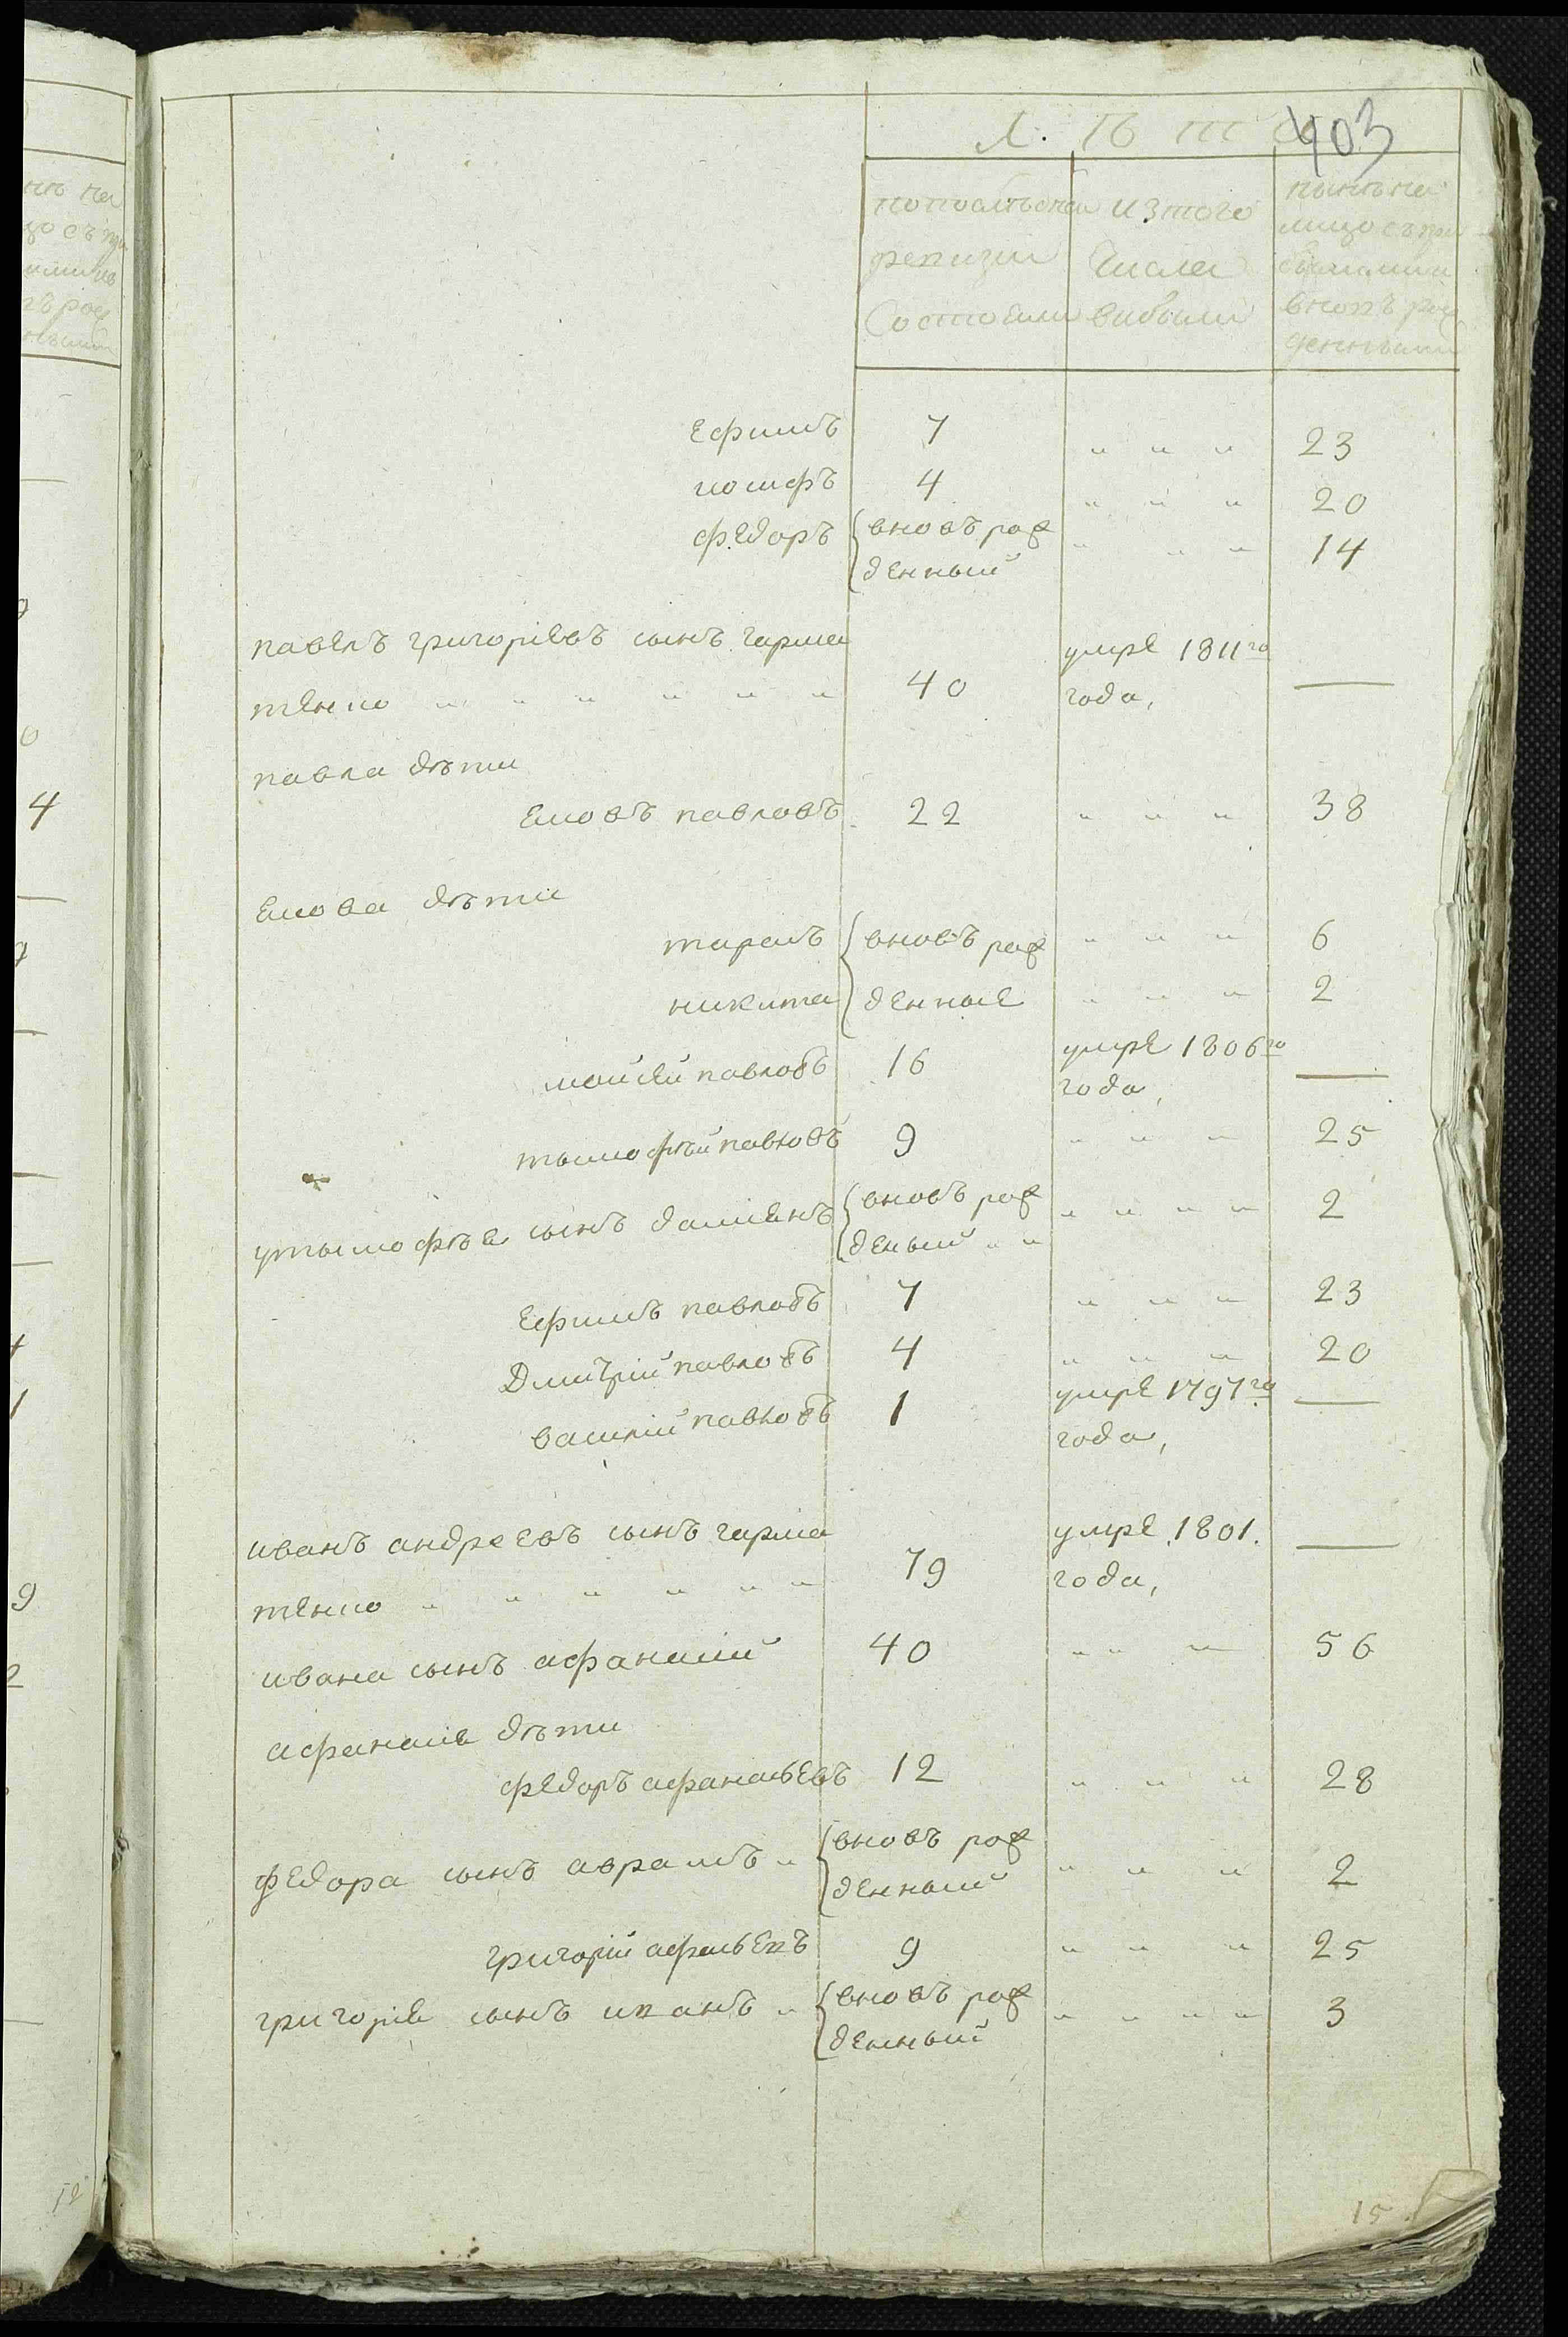 403
Л. Ѣ т а
попослѣдней ревизии состояли
изтого числа выбыли
нынѣ на лицо съ при былыми вновъ рож денными
Ефимъ 7 " " " 23
иосифъ 4 " " " 20
Федоръ вновъ рож " " " 14
денный
павелъ григорïевъ сынъ гарма умре 1811го
тенко " " " " " " 40 года, —
павла дѣти
Еловъ павловъ 22 " " " 38
Елова дѣти
тарасъ вновъ рож " " " 6
никита денные " " " 2
мойсей павловъ 16 умре 1806го —
года,
тымофѣй павловъ 9 " " " 25
утымофѣе сынъ дамïенъ вновъ рож " " " " 2
деный " "
Ефимъ павловъ 7 " " " 23
Дмитрïй павловъ 4 " " " 20
василïй павловъ 1 умре 1797го —
года,
иванъ андреевъ сынъ гарма умре 1801. —
тенко " " " " " " 79 года,
ивана сынъ афанасïй 40 " " " 56
афанасïя дѣти
федоръ афанасьевъ 12 " " " 28
федора сынъ аврамъ " вновъ рож " " " 2
денный
григорïй афасьевъ 9 " " " 25
григорïя сынъ иванъ " вновъ рож " " " " 3
денный
15